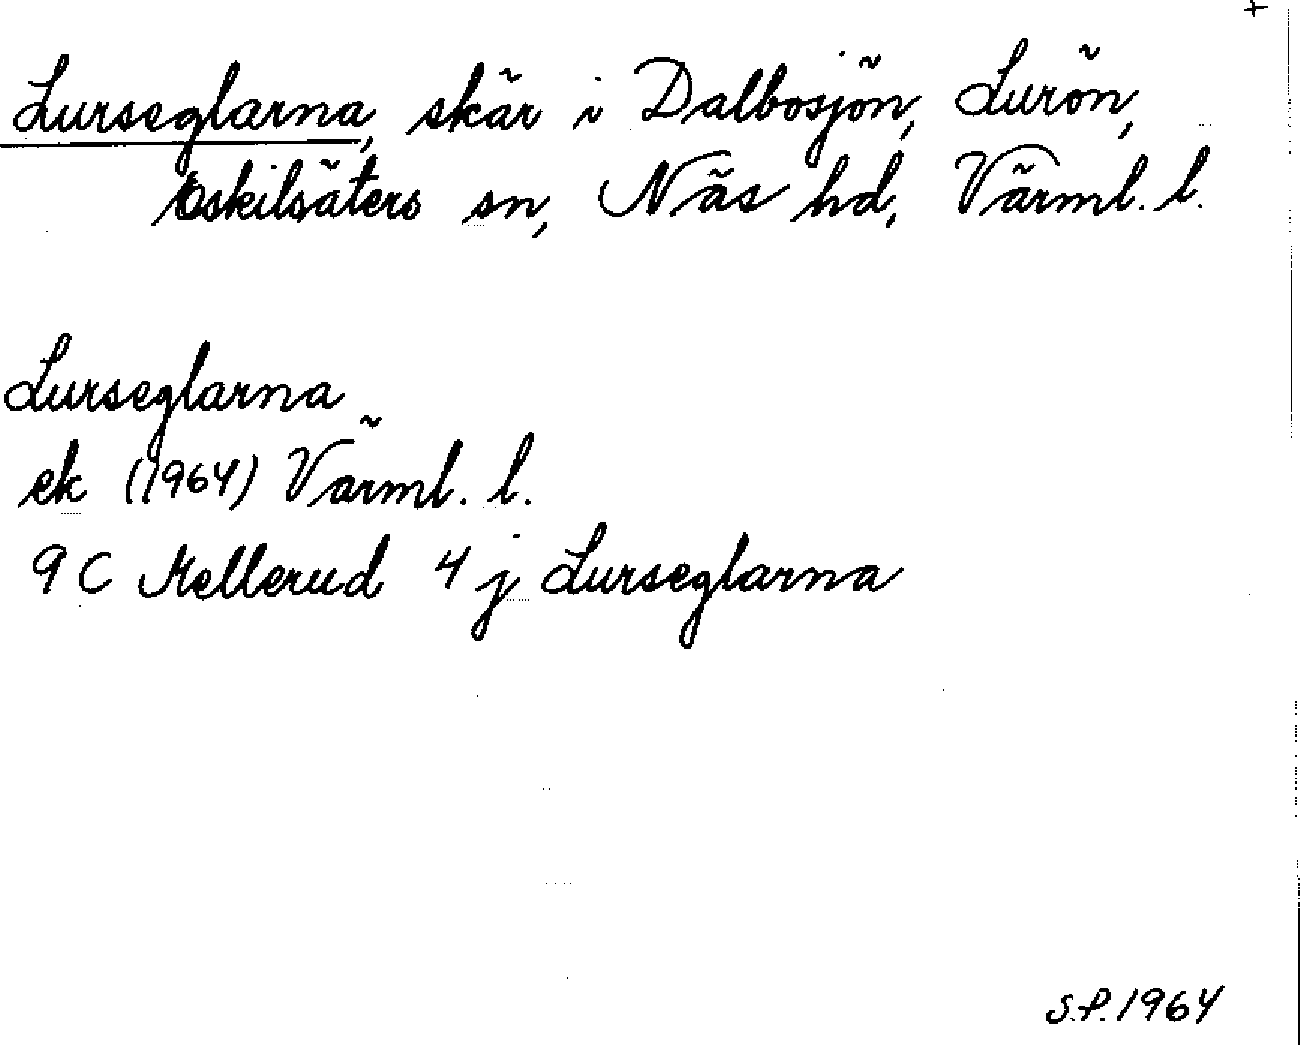 +
Lurseglarna, skär i Dalbosjön, Lurön,
Eskilsäters sn, Näs hd, Värml. l.
Lurseglarna
ek (1964) Värml. l.
9 C Mellerud 4 j Lurseglarna
S.P. 1964